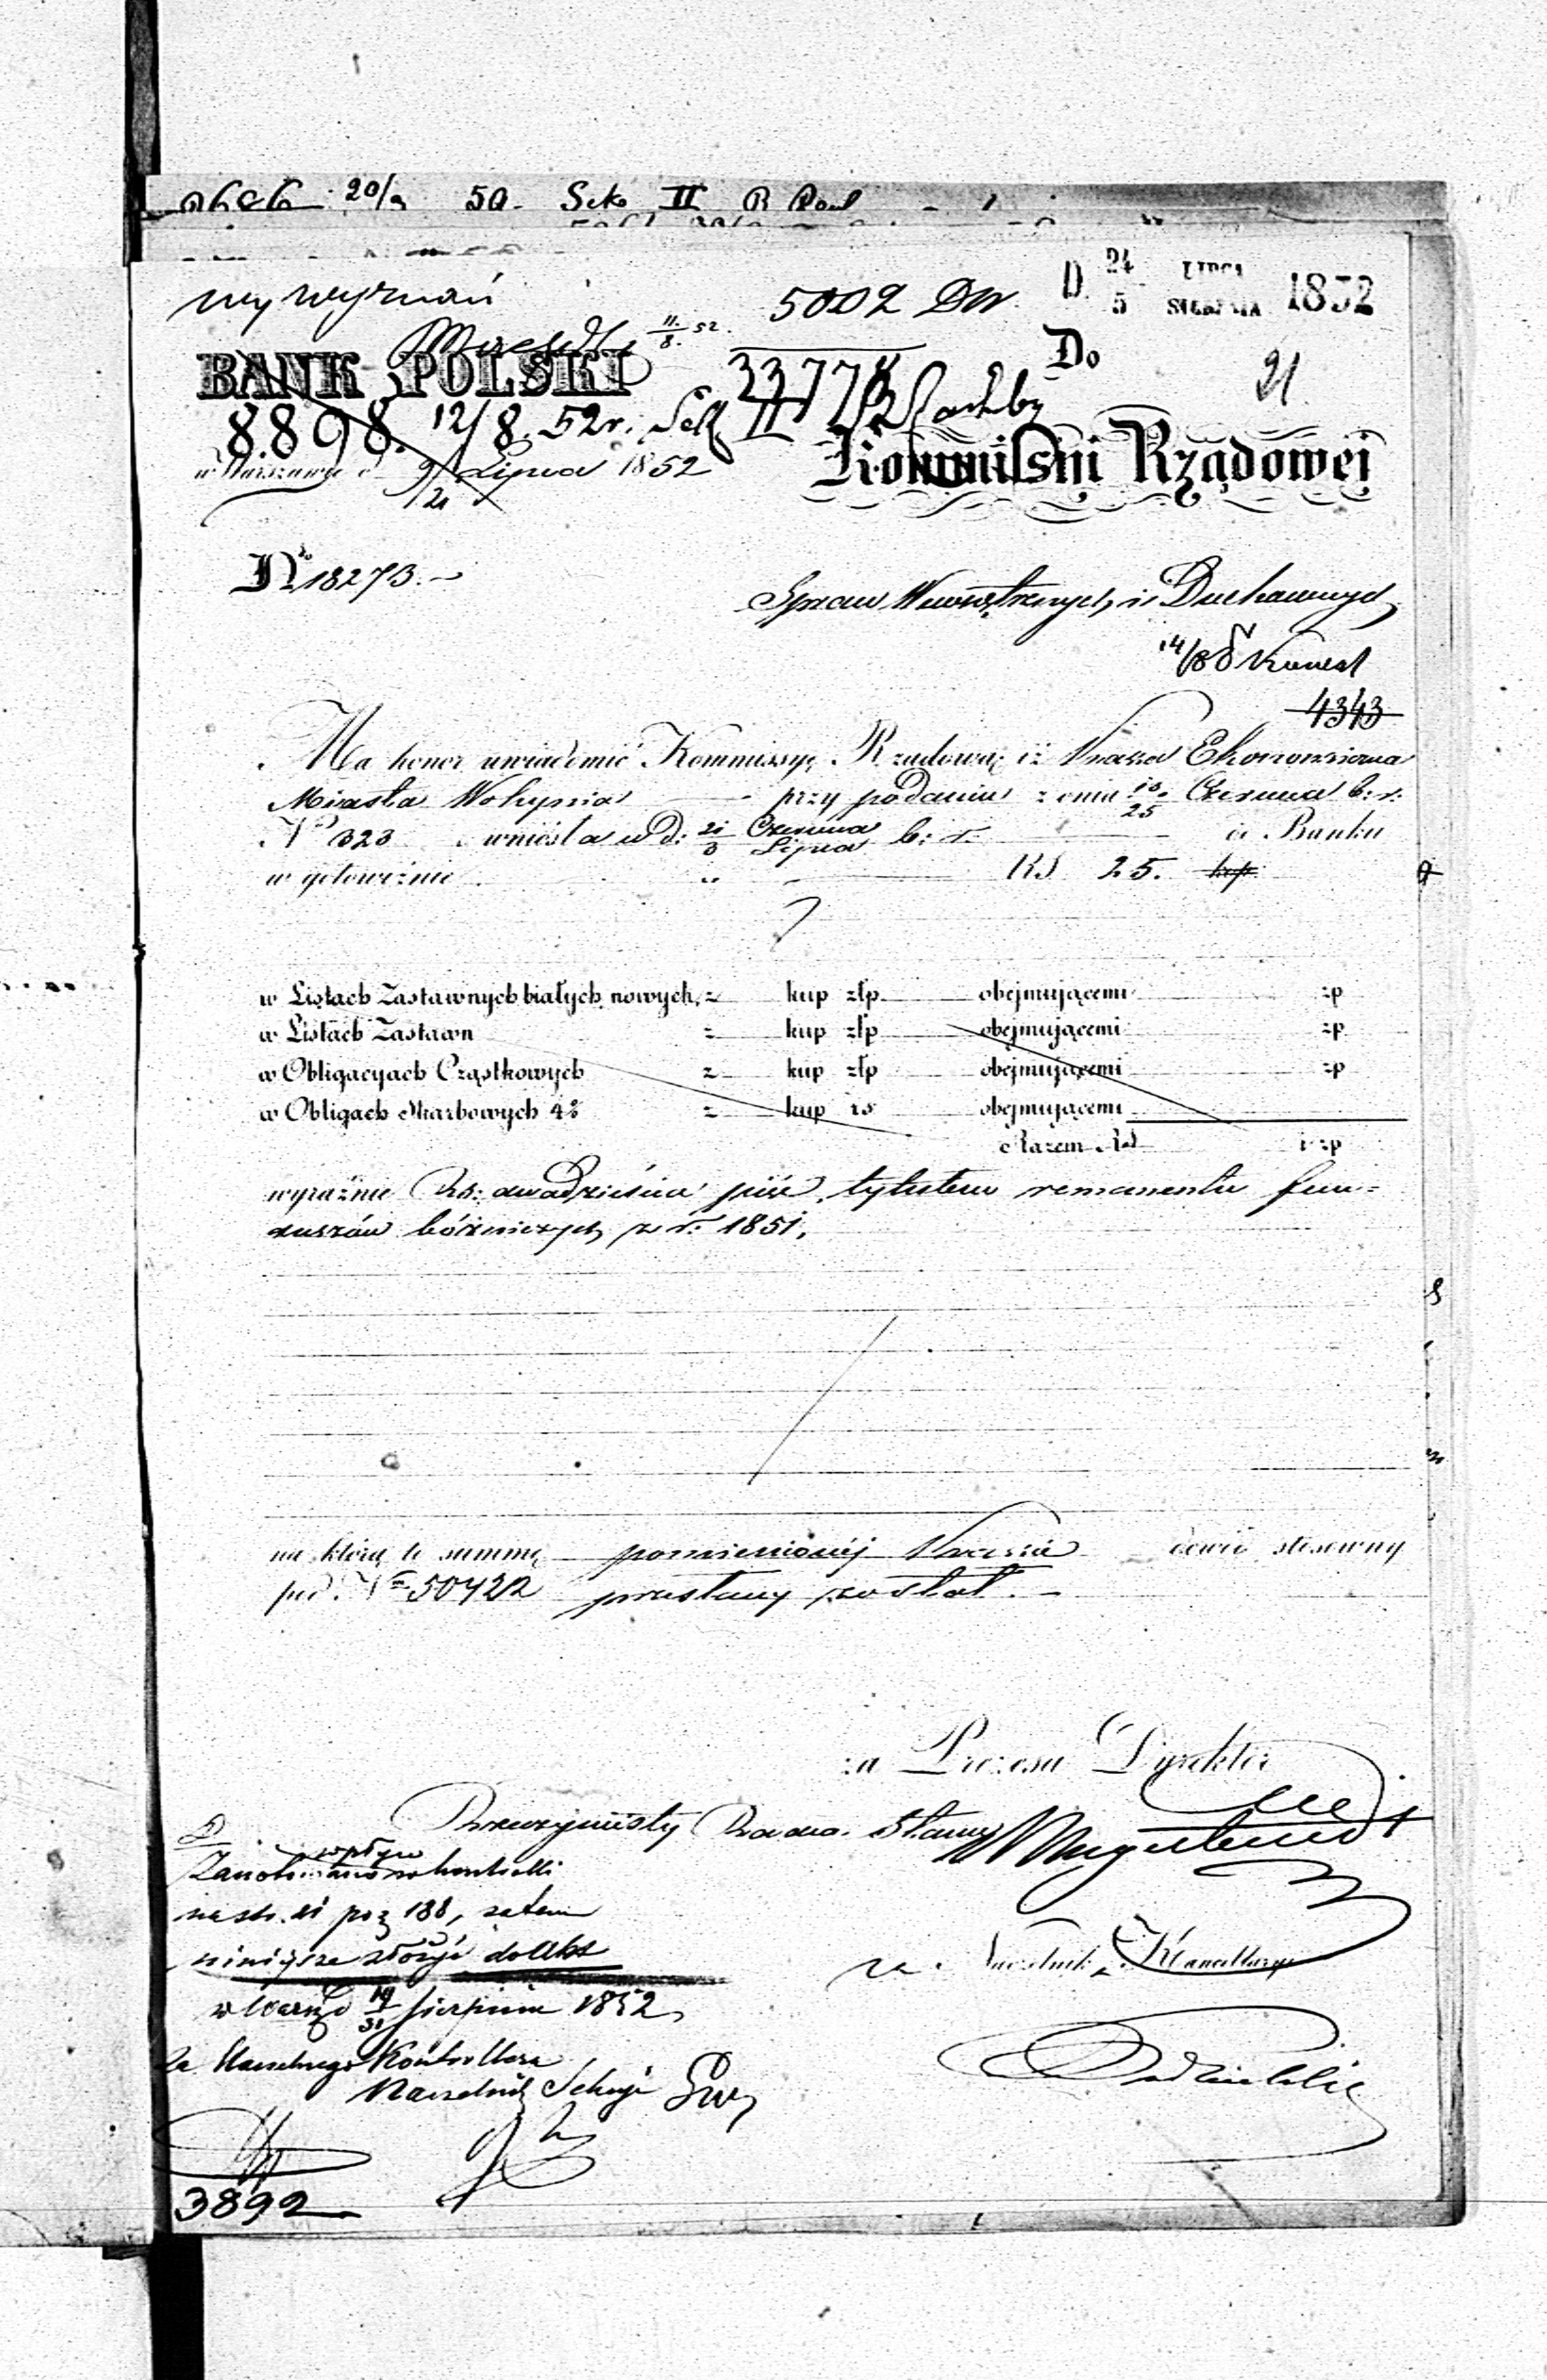 20/9 50 Sek II
Wyznań
5002 DW
D. 24 LIPCA
5 SIERPNIA 1852
11/8 52.
BANK POLSKI
33778
Do
21
8898. 12/8 52 r. Sek II
Kommissyi Rządowej
w Warszawie d 9/21 Lipca 1852
No 18273.
Spraw Wewnętrznych i Duchownych
14/8
4343
Ma honor uwiadomić Kommissyę Rządową iż Kassa Ekonomiczna
Miasta Wohynia przy podaniu z dnia 13/25 Czerwca b: r:
No 323 wniosła w D: 21/3 Czerwca/Lipca b: r. do Banku
w gotowiźnie RS 25. kop
w Listach Zastawnych białych nowych, z kup złp obejmującemi zp
w Listach Zastawn z kup złp obejmującemi zp
w Obligacyach Cząstkowych z kup złp obejmującemi zp
w Obligach Skarbowych 4% z kup rs obejmującemi
Razem RS i zp
wyraźnie Rs: dwadzieścia pięć, tytułem remanentu fun=
duszów bóżniczych z r: 1851.
na którą to summę pomienionej Kassie dowód stosowny
pod No 50422 przesłany został. —
za Prezesa Dyrektor
Rzeczywisty Radca Stanu
wpływ
Zanotowano w kontrolli
na str. 21 poz 188, zatem
niniejsze złożyć do Akt
w Warsz d 19/31 Sierpnia 1852
Za Naczelnego Kontrollera
Naczelnik Sekcyi
za Naczelnik Kancellaryi
3892